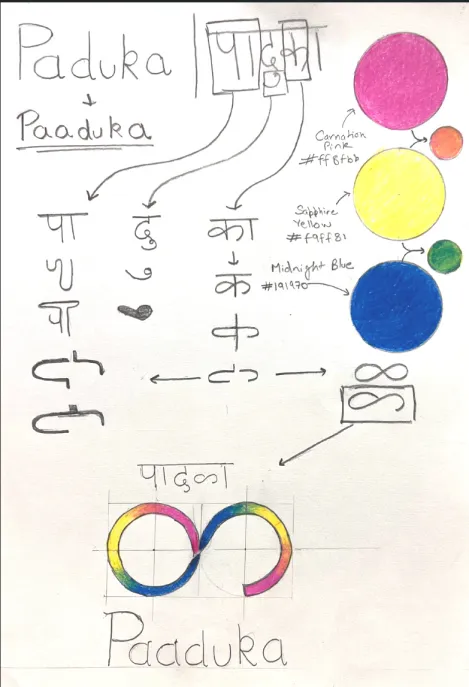 Paduka | पादुका
Paaduka
Carnation
Pink
#ff8fbb
Sapphire
Yellow
#f9ff81
Midnight Blue
#191970
पा दु का
क
पा
पादुका
Paaduka